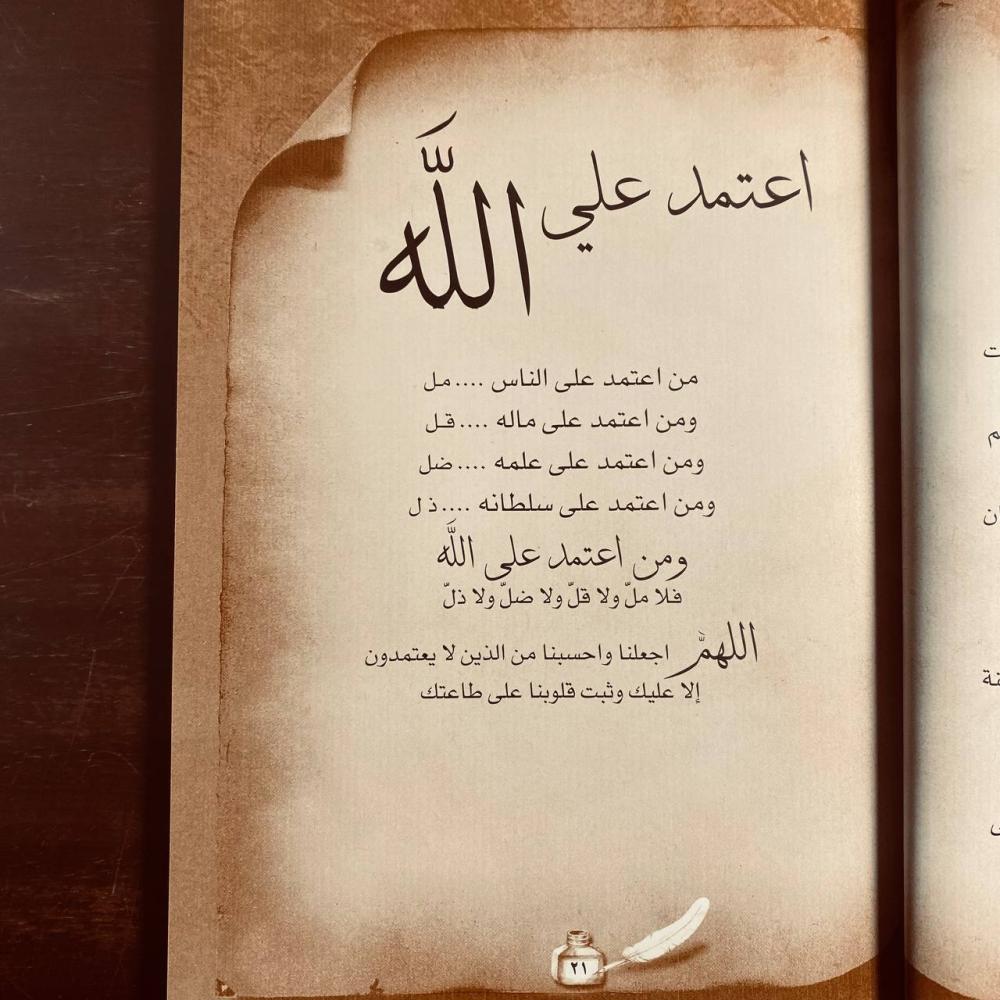 اعتمد علي الله
من اعتمد على الناس ....مل
ومن اعتمد على ماله ....قل
ومن اعتمد على علمه ....ضل
ومن اعتمد على سلطانه ....ذل
ومن اعتمد على الله
فلا ملّ ولا قلّ ولا ضلّ ولا ذلّ
اللهمَّ اجعلنا واحسبنا من الذين لا يعتمدون
إلا عليك وثبت قلوبنا على طاعتك
٢١